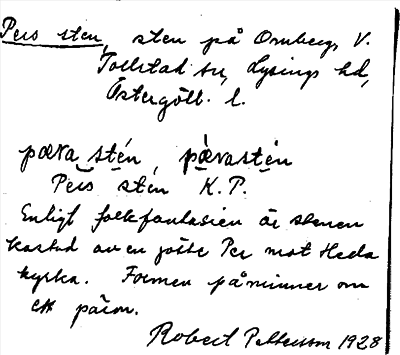 Pers sten, sten på Omberg, V.
Tollstad sn, Lysings hd,
Östergötl. l.
pæra stén, pærastén
Pers stén K.P.
Enligt folkfantasien är stenen
kastad av en jätte Per mot Heda
kyrka. Formen påminner om
ett päron.
Robert Pettersson 1928